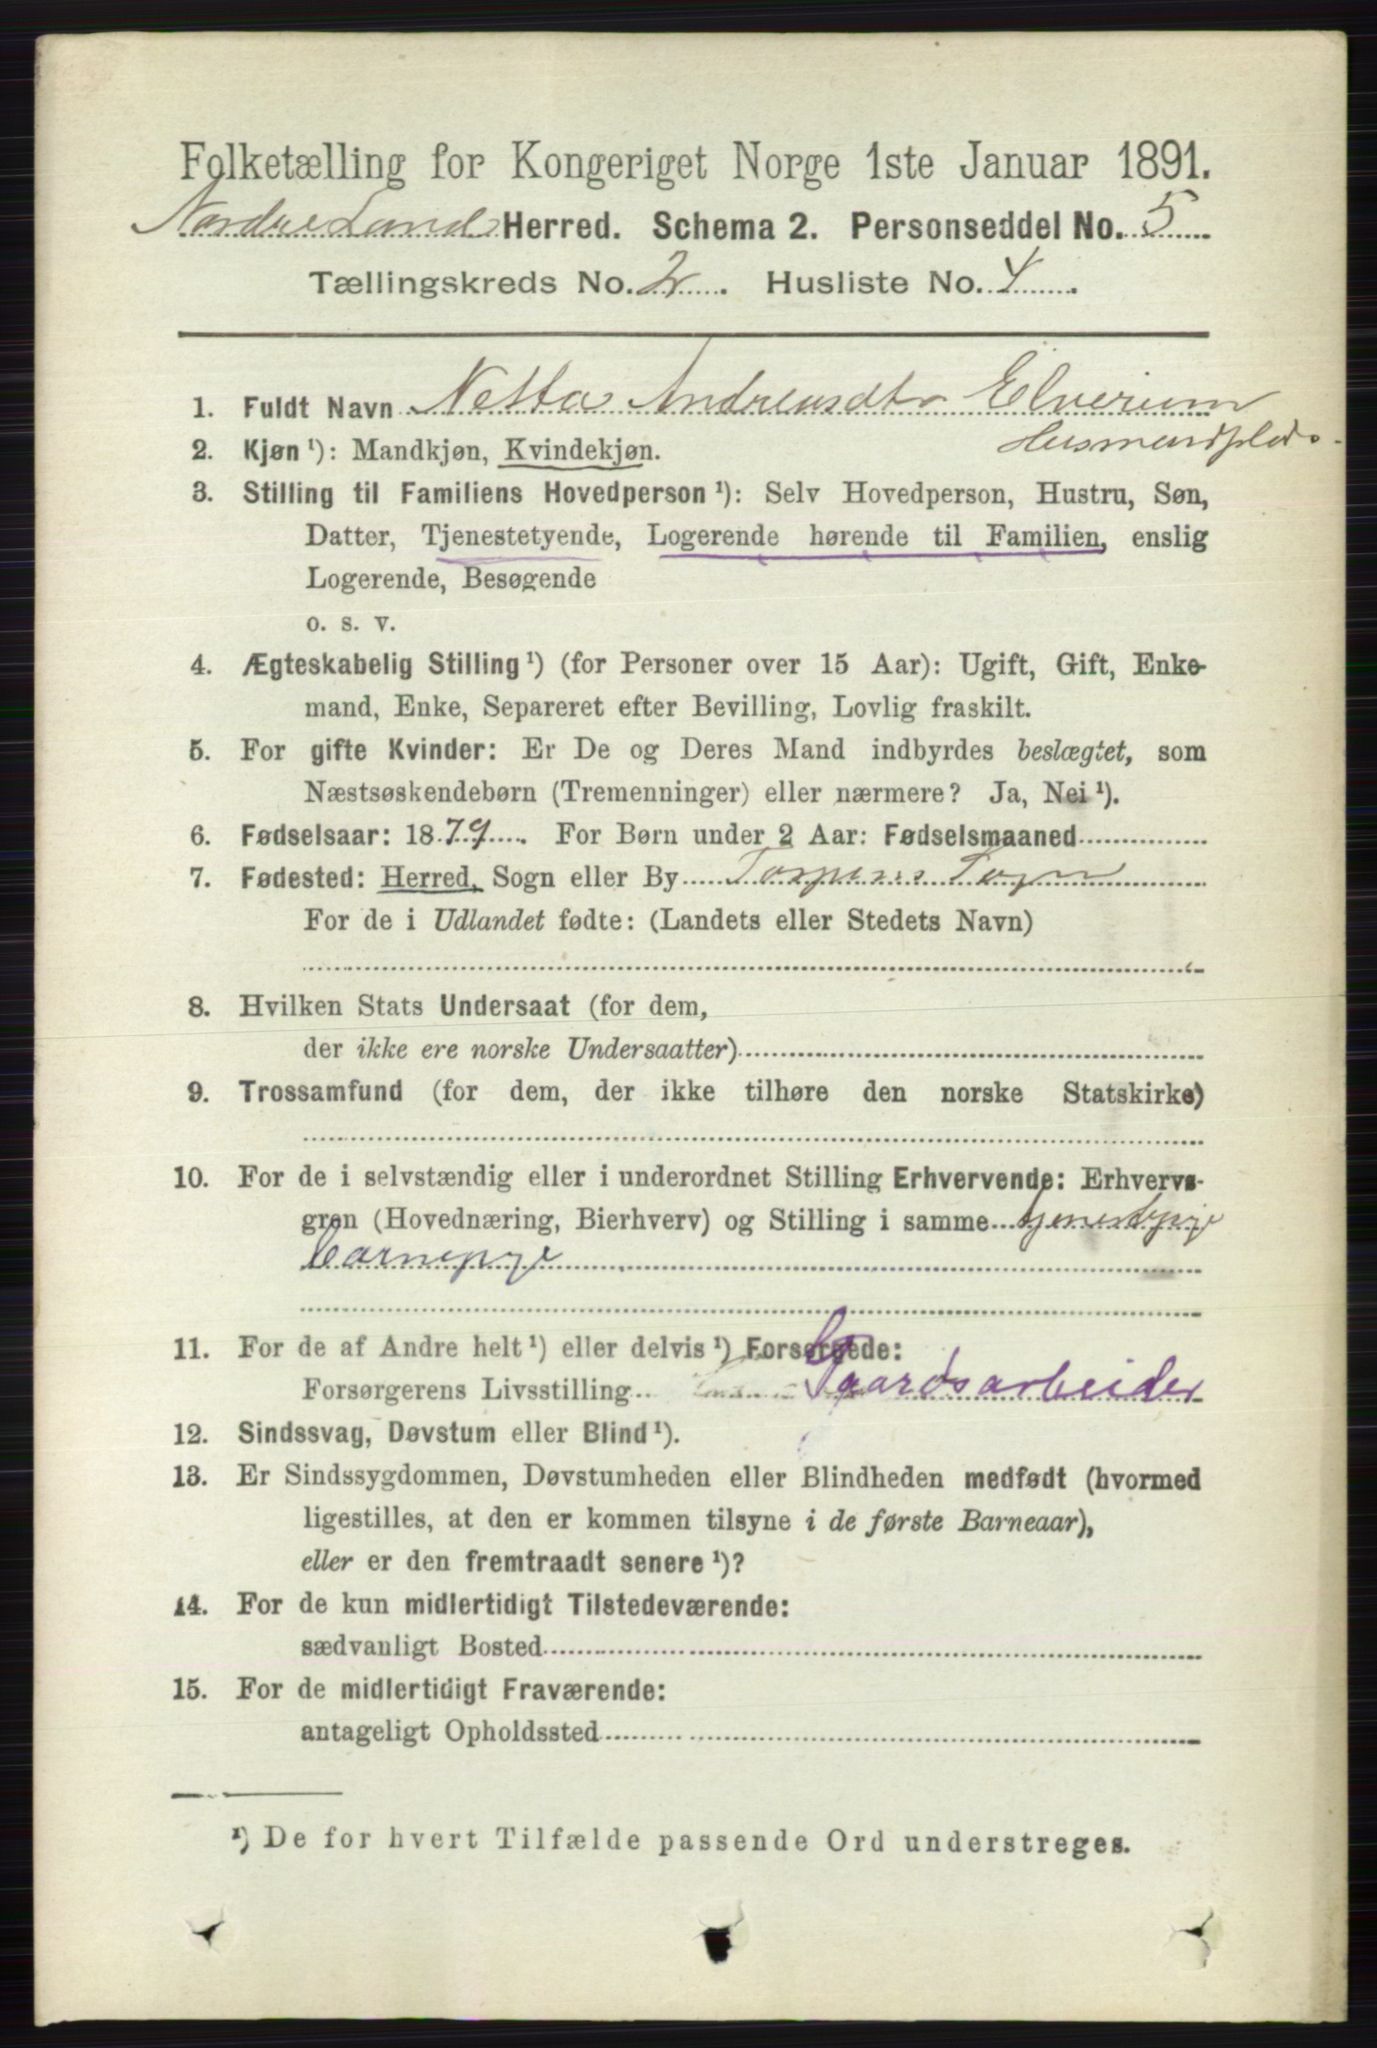 Folketælling for Kongeriget Norge 1ste Januar 1891.
Nordre Land Herred. Schema 2. Personseddel No. 5
Tællingskreds No. 2. Husliste No. 4.
1. Fuldt Navn Netta Andreasdtr Elverum
Husmandsplads
2. Kjøn ¹): Mandkjøn, Kvindekjøn.
3. Stilling til Familiens Hovedperson ¹): Selv Hovedperson, Hustru, Søn,
Datter, Tjenestetyende, Logerende hørende til Familien, enslig
Logerende, Besøgende
o. s. v.
4. Ægteskabelig Stilling ¹) (for Personer over 15 Aar): Ugift, Gift, Enke-
mand, Enke, Separeret efter Bevilling, Lovlig fraskilt.
5. For gifte Kvinder: Er De og Deres Mand indbyrdes beslægtet, som
Næstsøskendebørn (Tremenninger) eller nærmere? Ja, Nei ¹).
6. Fødselsaar: 1879. For Børn under 2 Aar: Fødselsmaaned
7. Fødested: Herred, Sogn eller By Torpens Sogn
For de i Udlandet fødte: (Landets eller Stedets Navn)
8. Hvilken Stats Undersaat (for dem,
der ikke ere norske Undersaatter)
9. Trossamfund (for dem, der ikke tilhøre den norske Statskirke)
10. For de i selvstændig eller i underordnet Stilling Erhvervende: Erhvervs-
gren (Hovednæring, Bierhverv) og Stilling i samme
Barnepige
11. For de af Andre helt ¹) eller delvis ¹) Forsørgede:
Forsørgerens Livsstilling Gaardsarbeider
12. Sindssvag, Døvstum eller Blind ¹).
13. Er Sindssygdommen, Døvstumheden eller Blindheden medfødt (hvormed
ligestilles, at den er kommen tilsyne i de første Barneaar),
eller er den fremtraadt senere ¹)?
14. For de kun midlertidigt Tilstedeværende:
sædvanligt Bosted
15. For de midlertidigt Fraværende:
antageligt Opholdssted
¹) De for hvert Tilfælde passende Ord understreges.